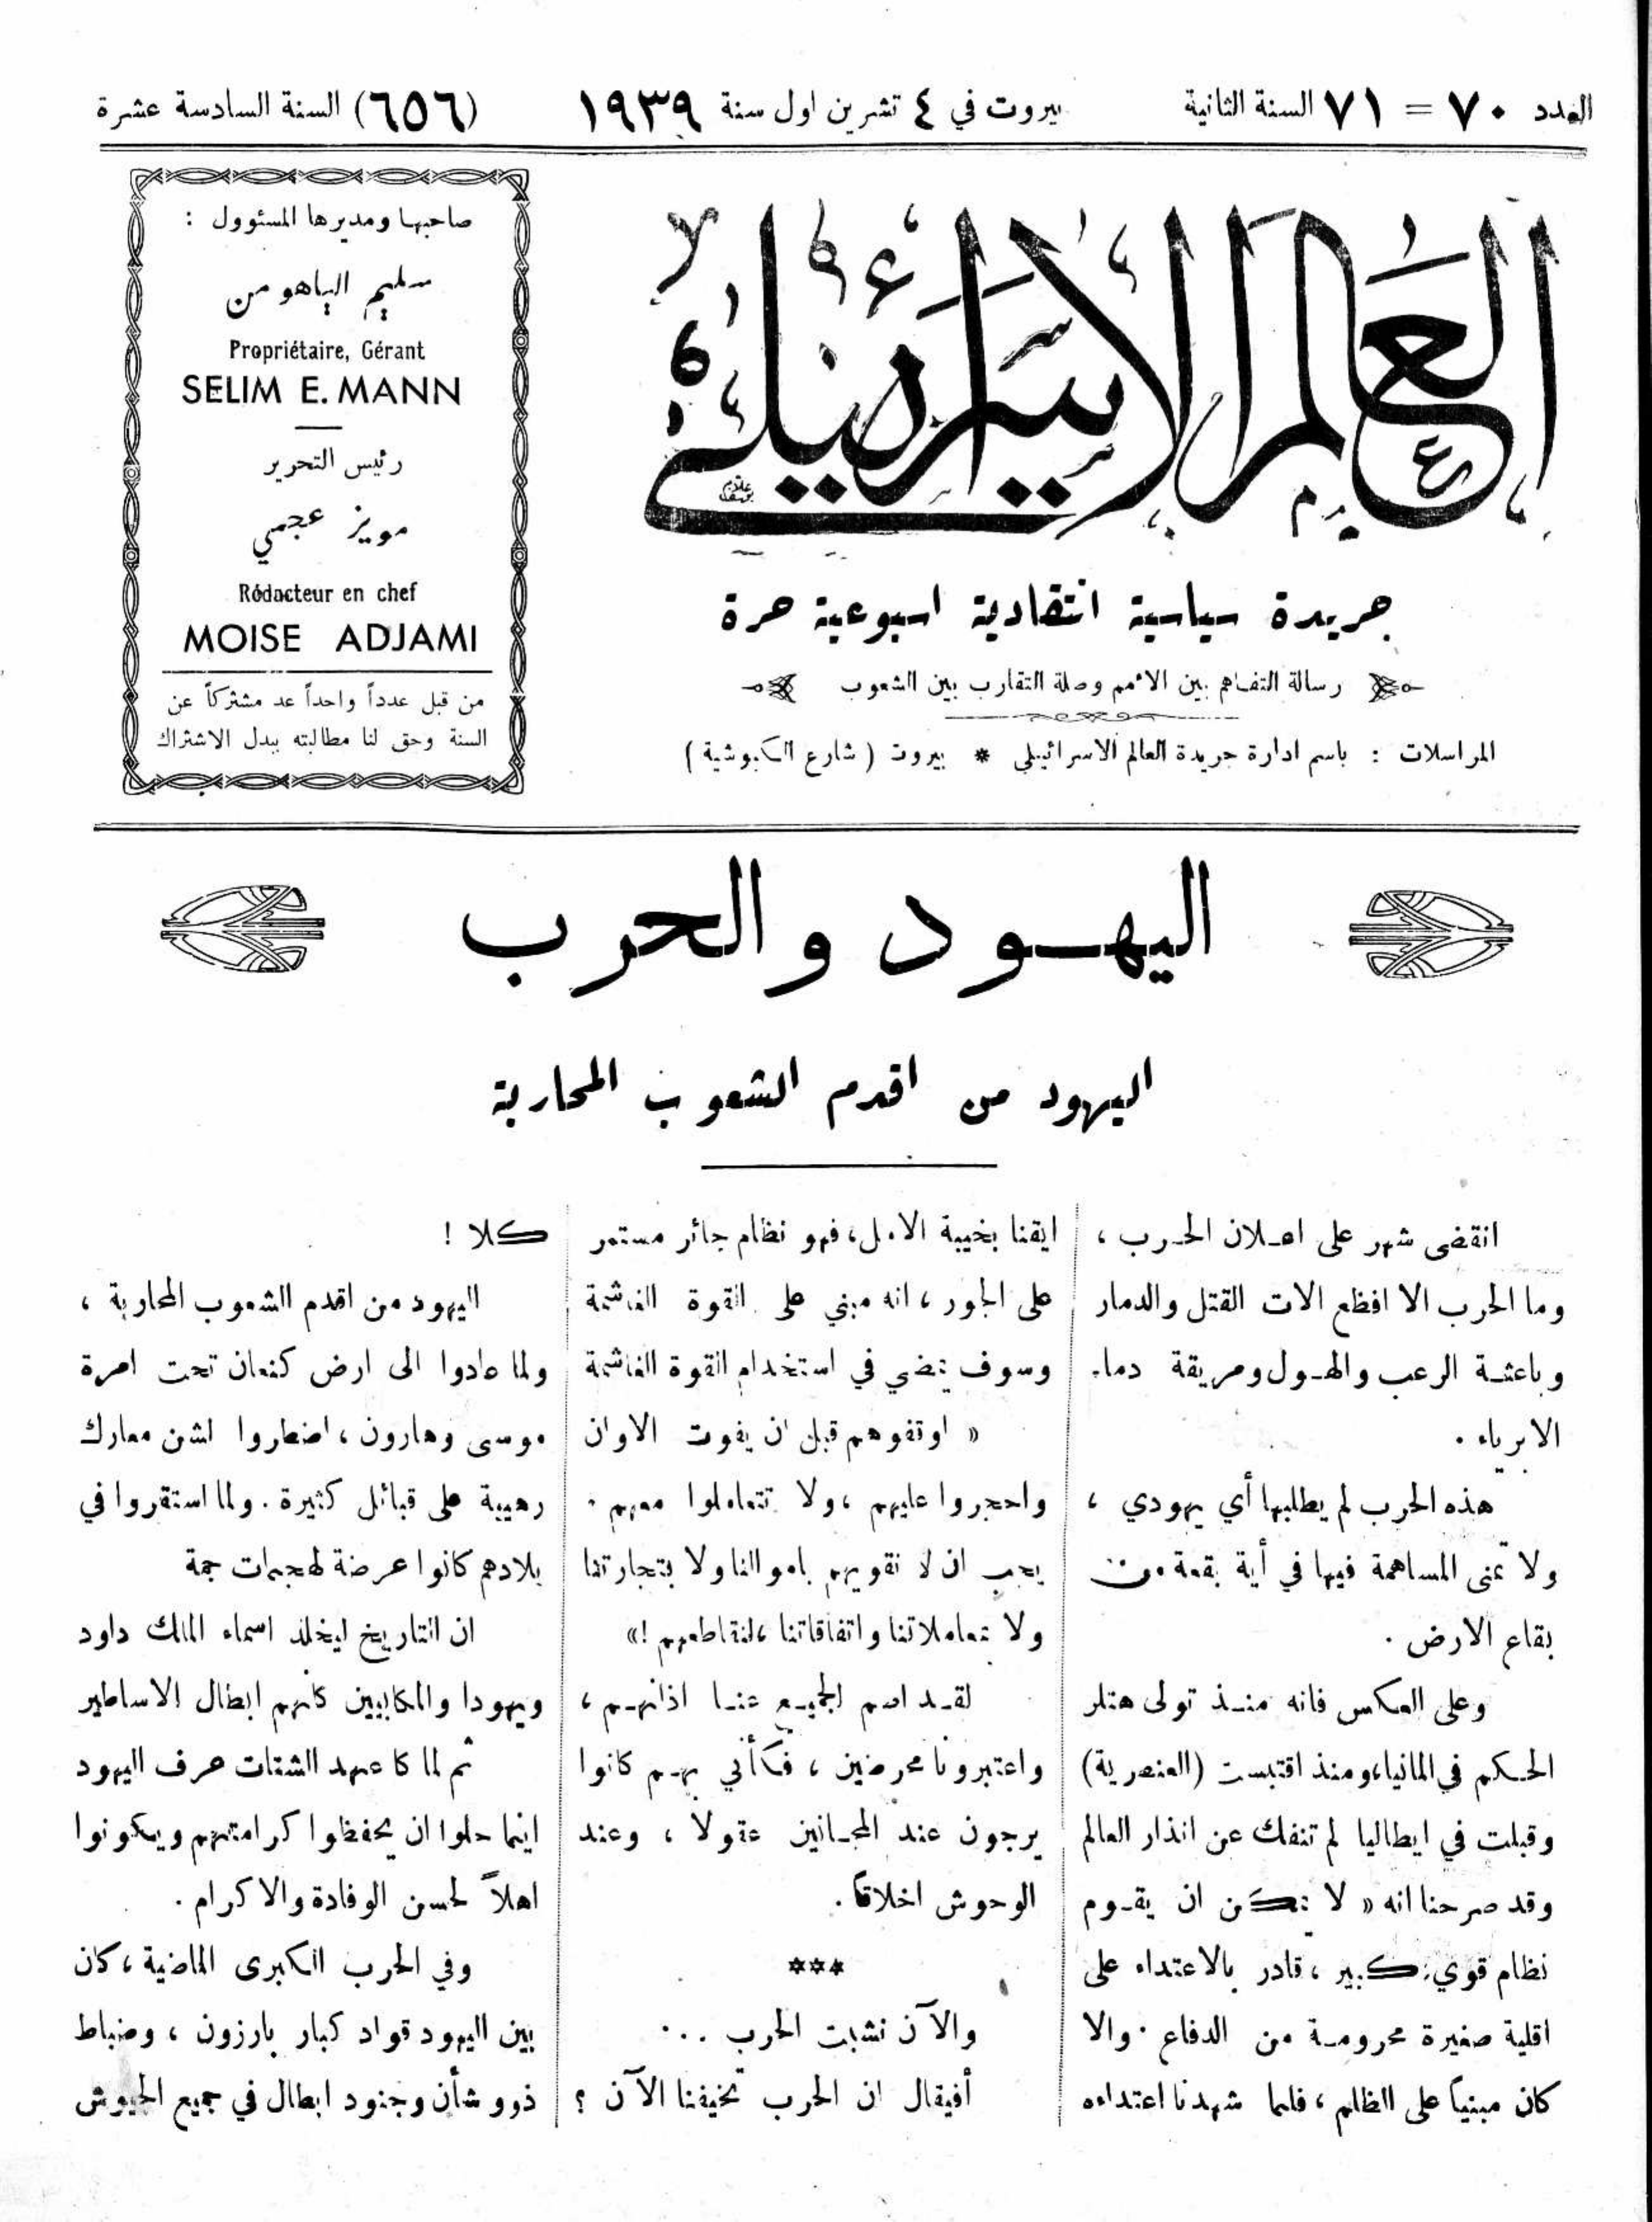 العدد ٧٠ = ٧١ السنة الثانية
بيروت في ٤ تشرين اول سنة ١٩٣٩
(٦٥٦) السنة السادسة عشرة
العالم الاسرائيلي
جريدة سياسية انتقادية اسبوعية حرة
رسالة التفاهم بين الامم وصلة التقارب بين الشعوب
المراسلات : باسم ادارة جريدة العالم الاسرائيلي * بيروت ( شارع الكبوشية )
صاحبها ومديرها المسئوول :
سليم الياهو من
Propriétaire, Gérant
SELIM E. MANN
رئيس التحرير
مويز عجمي
Rédacteur en chef
MOISE ADJAMI
من قبل عدداً واحداً عد مشتركاً عن
السنة وحق لنا مطالبته ببدل الاشتراك
اليهود والحرب
اليهود من اقدم الشعوب المحاربة
انقضى شهر على اعلان الحرب ،
وما الحرب الا افظع الات القتل والدمار
وباعثة الرعب والهول ومريقة دماء
الابرياء .
هذه الحرب لم يطلبها أي يهودي ،
ولا تمنى المساهمة فيها في أية بقعة من
بقاع الارض .
وعلى العكس فانه منذ تولى هتلر
الحكم في المانيا ، ومنذ اقتبست (العنصرية)
وقبلت في ايطاليا لم تنفك عن انذار العالم
وقد صرحنا انه « لا يمكن ان يقوم
نظام قوي كبير ، قادر بالاعتداء على
اقلية صغيرة محرومة من الدفاع . والا
كان مبنياً على الظلم ، فلما شهدنا اعتداءه
ايقنا بخيبة الامل ، فهو نظام جائر مستمر
على الجور ، انه مبني على القوة الغاشمة
وسوف يمضي في استخدام القوة الغاشمة
« اوقفوهم قبل ان يفوت الاوان
واحجروا عليهم ، ولا تتعاملوا معهم .
يجب ان لا نقويهم باموالنا ولا بتجارتنا
ولا بمعاملاتنا واتفاقاتنا ، لنقاطعهم !»
لقد اصم الجميع عنا اذانهم ،
واعتبرونا محرضين ، فكأني بهم كانوا
يرجون عند المجانين عقولا ، وعند
الوحوش اخلاقاً .
***
والآن نشبت الحرب ...
أفيقال ان الحرب تخيفنا الآن ؟
كلا !
اليهود من اقدم الشعوب المحاربة ،
ولما عادوا الى ارض كنعان تحت امرة
موسى وهارون ، اضطروا لشن معارك
رهيبة على قبائل كثيرة . ولما استقروا في
بلادهم كانوا عرضة لهجمات جمة
ان التاريخ ليخلد اسماء الملك داود
ويهودا والمكابيين كانهم ابطال الاساطير
ثم لما كا عهد الشتات عرف اليهود
اينما حلوا ان يحفظوا كرامتهم ويكونوا
اهلاً لحسن الوفادة والاكرام .
وفي الحرب الكبرى الماضية ، كان
بين اليهود قواد كبار بارزون ، وضباط
ذوو شأن وجنود ابطال في جميع الجيوش